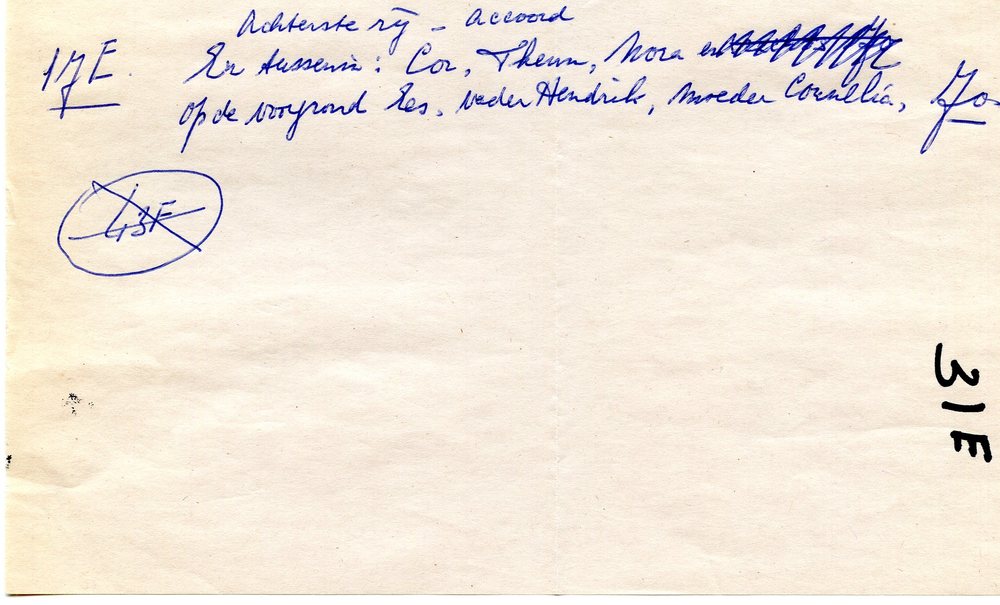 Achterste rij - accoord
17E. Er tussenin: Cor, Theun, Nora en
op de voorgrond Ees, vader Hendrik, moeder Cornellia, Jo
43E
31E